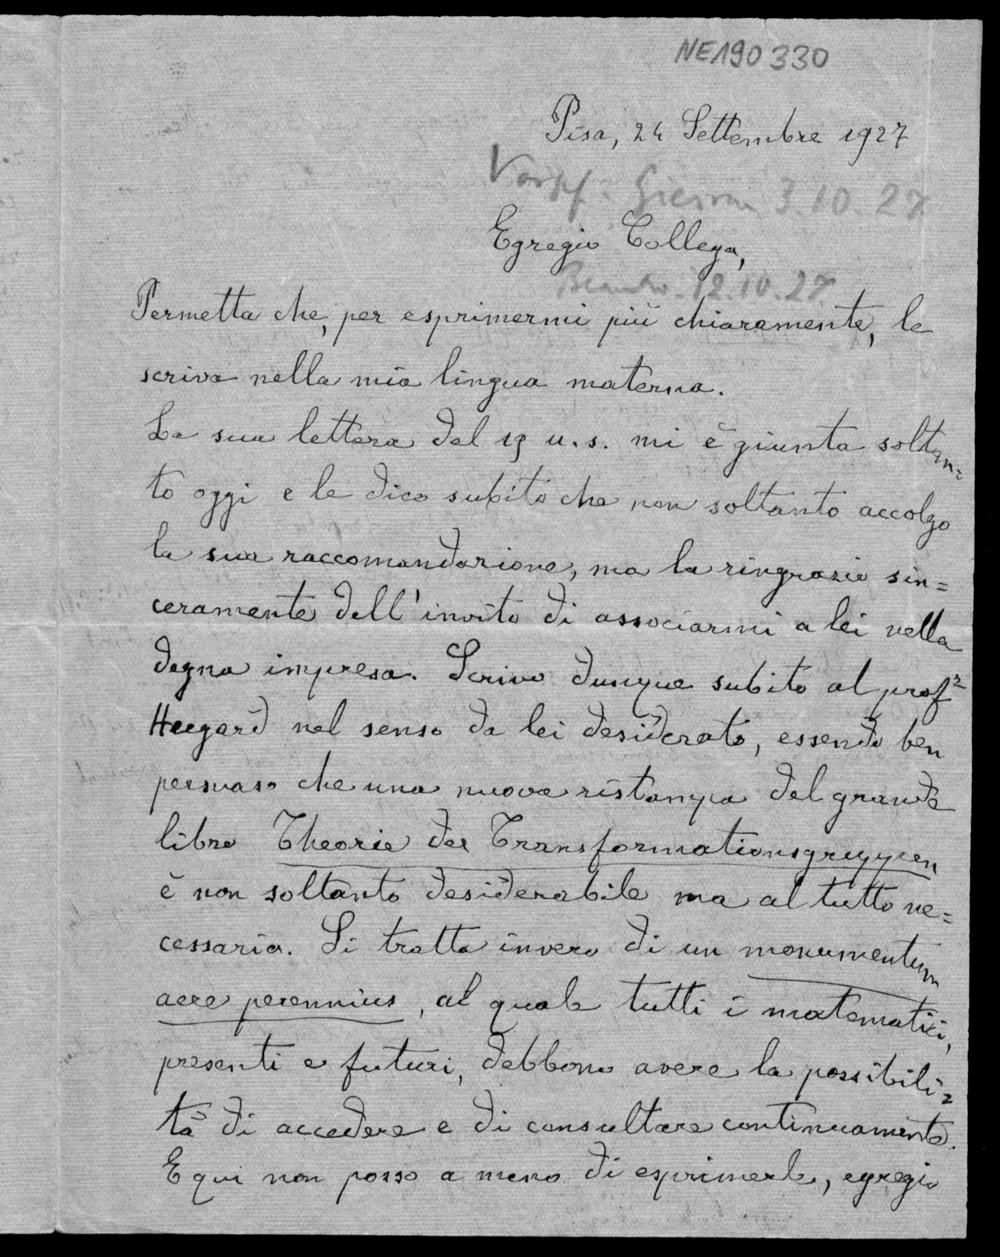 NE190330
Pisa, 24 Settembre 1927
3.10.27
Egregio Collega,
12.10.27
Permetta che, per esprimermi più chiaramente, le
scriva nella mia lingua materna.
La sua lettera del 19 u.s. mi è giunta soltan=
to oggi e le dico subito che non soltanto accolgo
la sua raccomandazione, ma la ringrazio sin=
ceramente dell'invito di associarmi a lei nella
degna impresa. Scrivo dunque subito al prof.
Heegard nel senso da lei desiderato, essendo ben
persuaso che una nuova ristampa del grande
libro Theorie der Transformationsgruppen
è non soltanto desiderabile ma al tutto ne=
cessaria. Si tratta invero di un monumentum
aere perennius, al quale tutti i matematici,
presenti e futuri, debbono avere la possibili=
tà di accedere e di consultare continuamente.
E qui non posso a meno di esprimerle, egregio